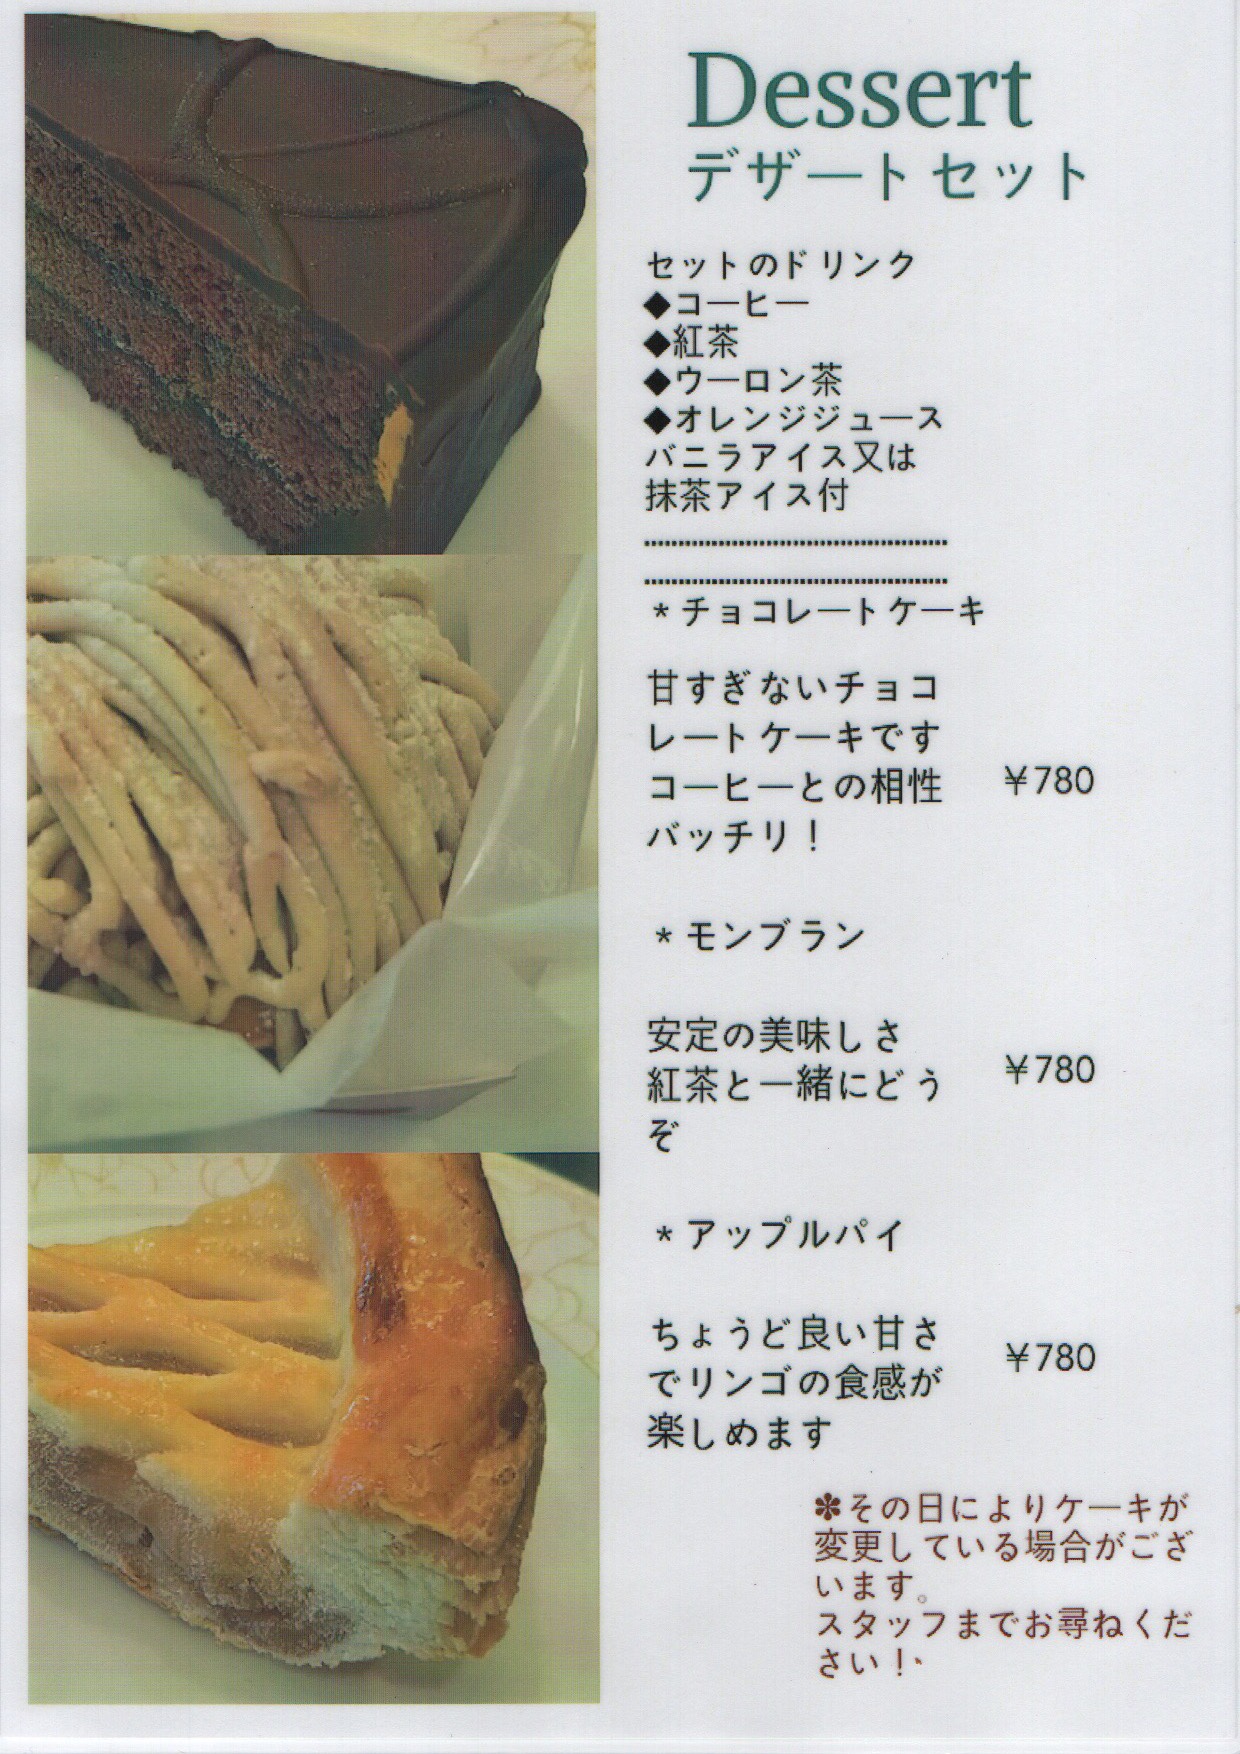 Dessert
デザートセット
セットのドリンク
◆コーヒー
◆紅茶
◆ウーロン茶
◆オレンジジュース
バニラアイス又は
抹茶アイス付
＊チョコレートケーキ
甘すぎないチョコ
レートケーキです
コーヒーとの相性
バッチリ！
￥780
＊モンブラン
安定の美味しさ
紅茶と一緒にどう
ぞ
￥780
＊アップルパイ
ちょうど良い甘さ
でリンゴの食感が
楽しめます
￥780
✽その日によりケーキが
変更している場合がござ
います。
スタッフまでお尋ねくだ
さい！